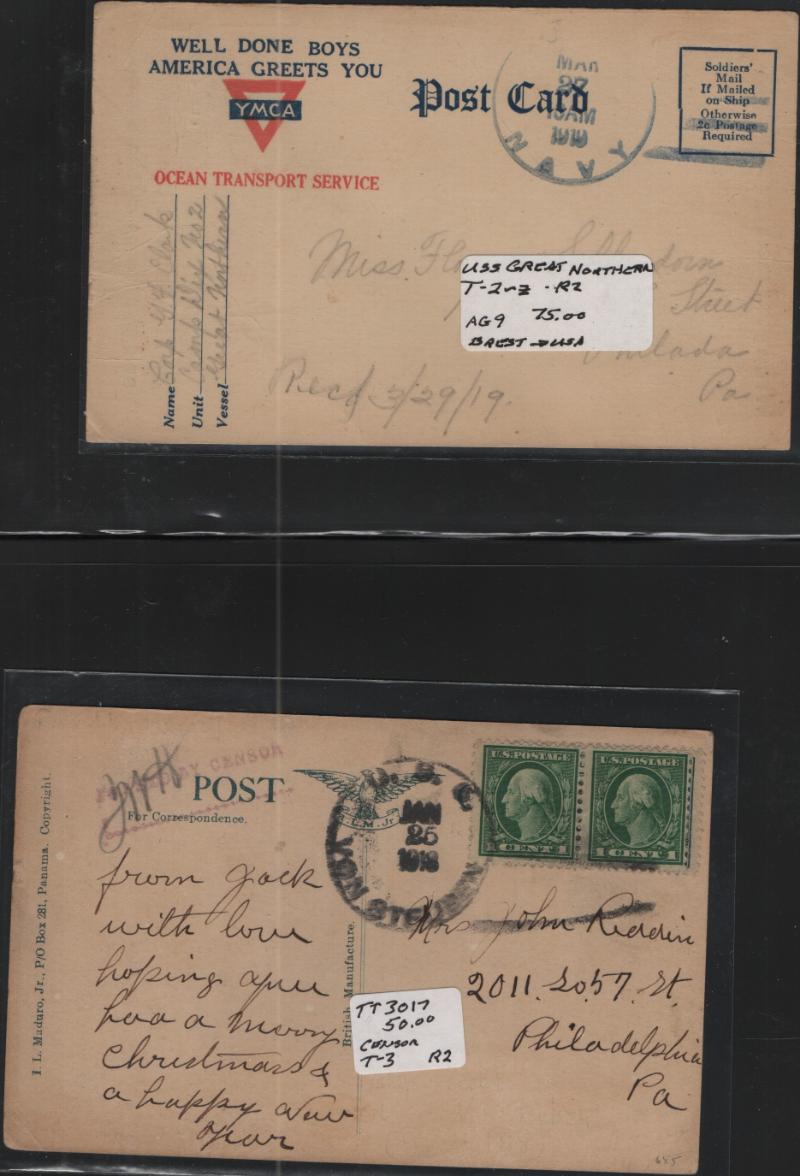 WELL DONE BOYS
AMERICA GREETS YOU
YMCA
OCEAN TRANSPORT SERVICE
Post Card
MAR
27
AM
1919
NAVY
Soldiers'
Mail
If Mailed
on Ship
Otherwise
2c Postage
Required
Name Clark
Unit No 2
Vessel Great Northern
Miss
Street
Philada
Pa
Recd 3/29/19.
USS GREAT NORTHERN
T-2nz - R2
AG9 75.00
BREST → USA
BY CENSOR
POST
For Correspondence.
I. L. Maduro, Jr., P/O Box 281, Panama. Copyright.
British Manufacture.
JAN
25
1918
U.S. POSTAGE
1 CENT 1
U.S. POSTAGE
1 CENT 1
from Jack
with love
hoping you
had a merry
Christmass &
a happy New
year
Mrs John Riddin
2011. So. 57. St.
Philadelphia
Pa
TT3017
50.00
CENSOR
T-3 R2